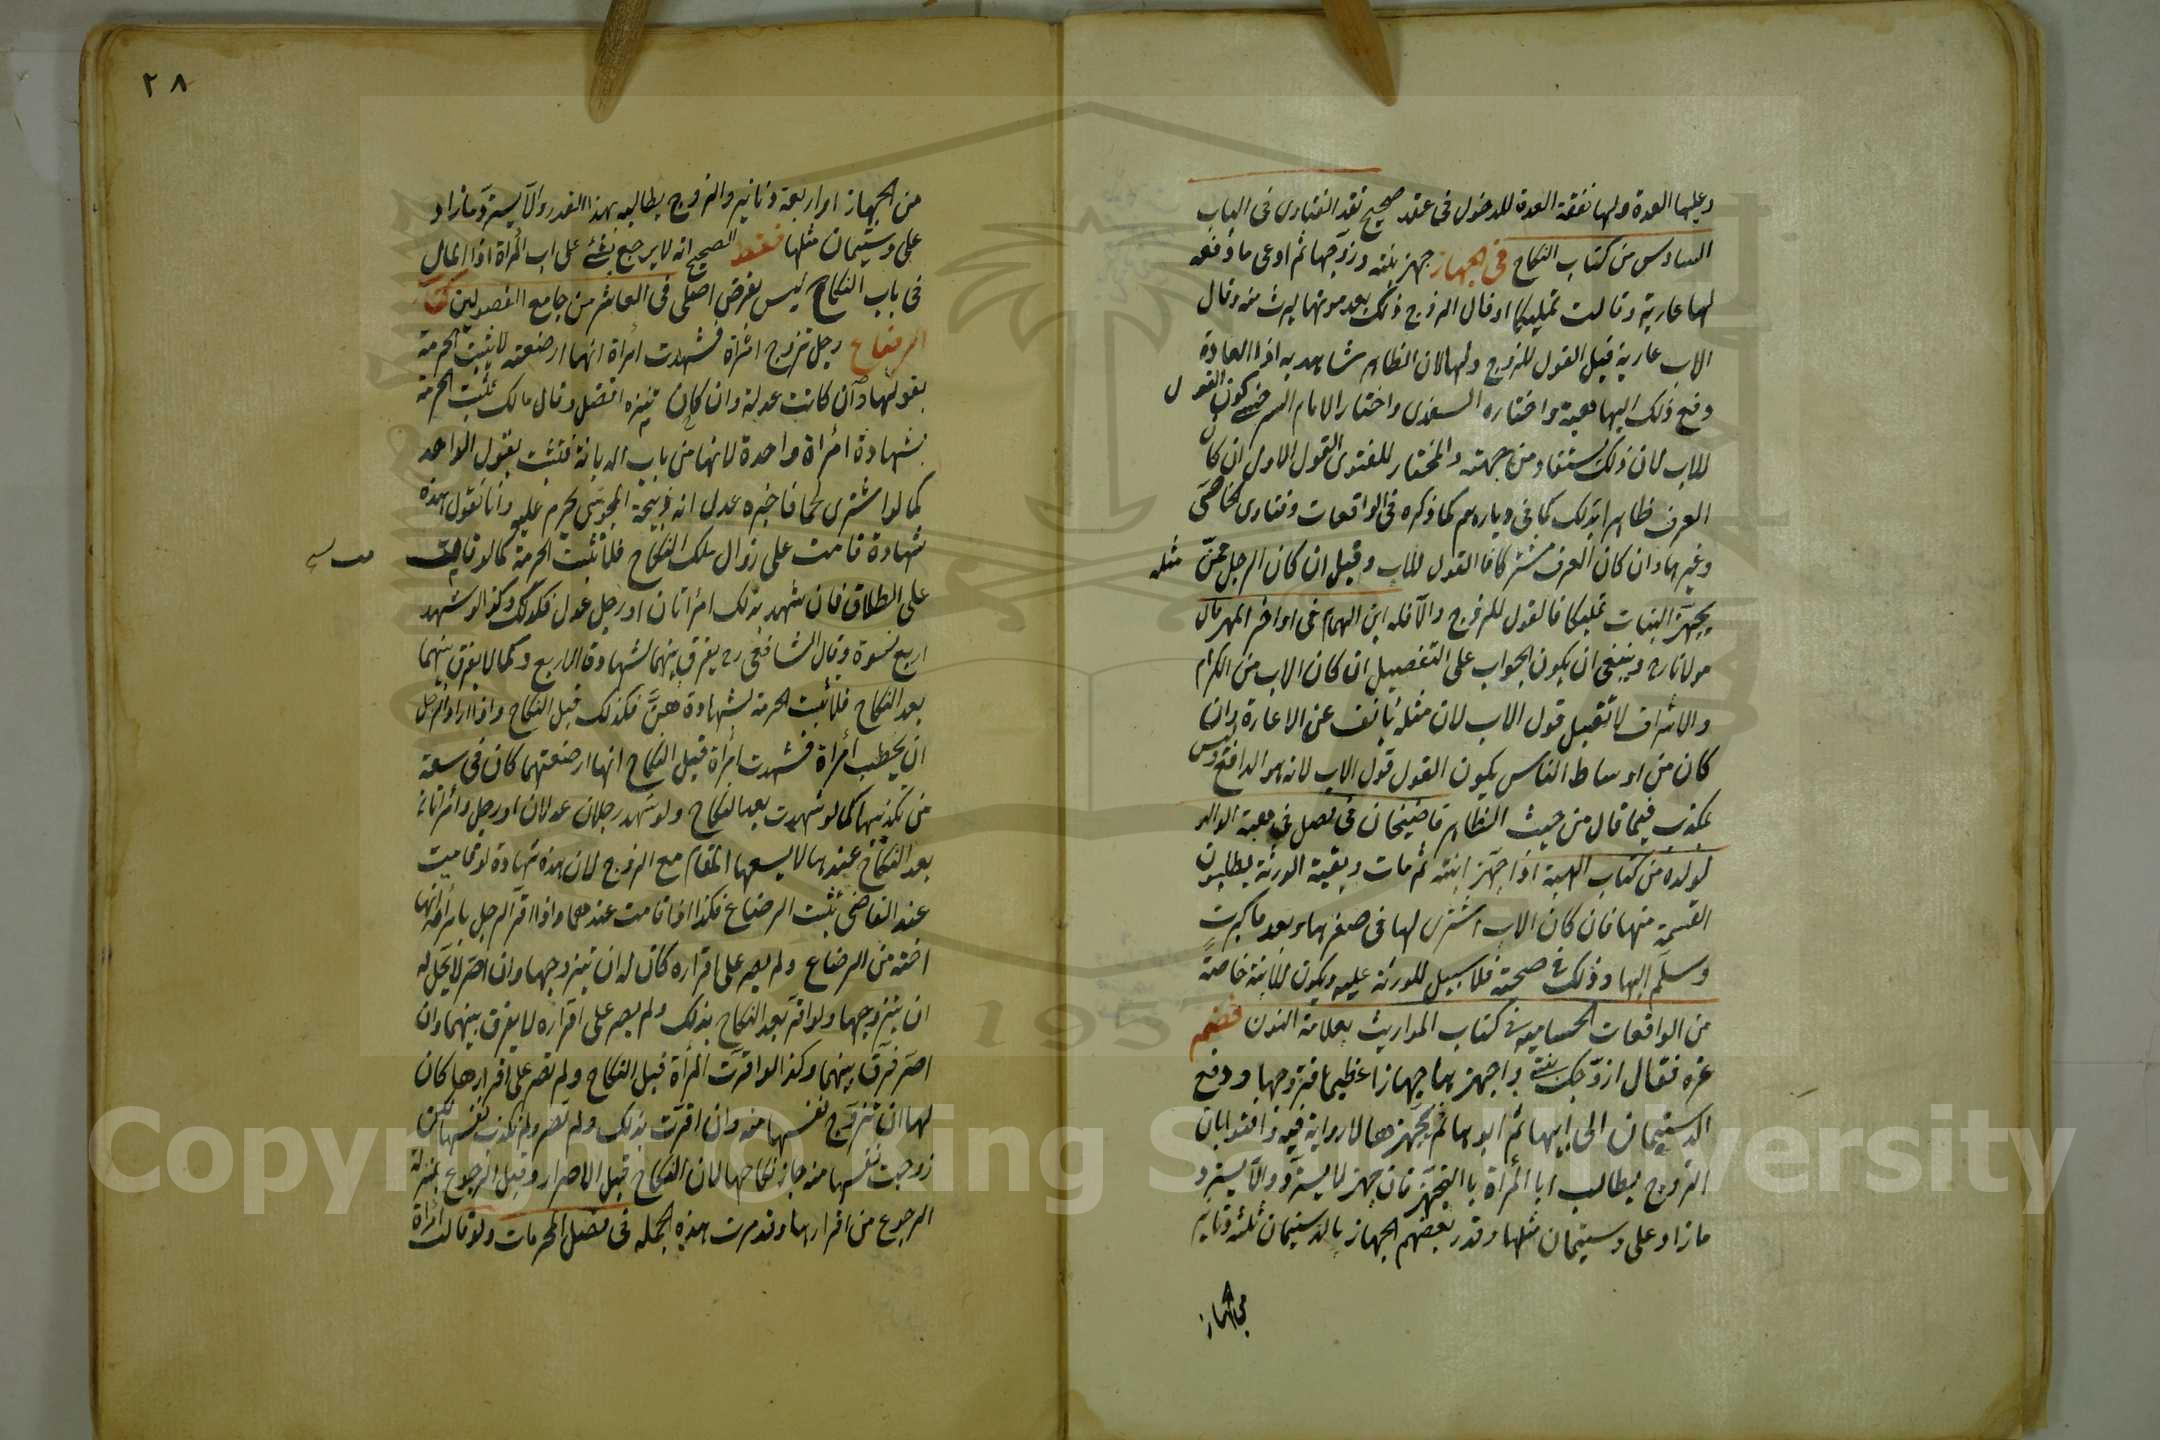 وعليها العدة ولها نفقة العدة للدخول فى عقد صحيح نقد الفتاوى فى الباب
السادس من كتاب النكاح فى الجهاز جهز بنته وزوجها ثم ادعى ما دفعه
لها عارية وقالت تمليكا او قال الزوج ذلك بعد موتها ليرث منه وقال
الاب عارية قيل القول للزوج ولها لان الظاهر شاهد به اذ العادة
دفع ذلك اليها هبة واختاره السغدى واختار الامام السرخسى كون القول
للاب لان ذلك يستفاد من جهته والمختار للفتوى القول الاول ان كان
العرف ظاهرا بذلك كما فى ديارهم كما ذكره فى الواقعات وفتاوى الخاصى
وغيرها وان كان العرف مشتركا فالقول للاب وقيل ان كان الرجل ممن مثله
يجهز البنات تمليكا فالقول للزوج والا فله ابن الهمام فى اواخر المهر قال
مولانا رح وينبغى ان يكون الجواب على التفصيل ان كان الاب من الكرام
والاشراف لا تقبل قول الاب لان مثله يأنف عن الاعارة وان
كان من اوساط الناس يكون القول قول الاب لانه هو الدافع وليس
بمكذب فيما قال من حيث الظاهر قاضيخان فى فصل فى هبة الوالد
لولده من كتاب الهبة اذا جهز ابنته ثم مات وبقية الورثة يطلبون
القسمة منها فان كان الاب اشترى لها فى صغرها وبعد ما كبرت
وسلم اليها وذلك فى صحته فلا سبيل للورثة عليه ويكون للابنة خاصة
من الواقعات الحسامية فى كتاب المواريث بعلامة النون قضم
غره فقال ازوجك بنتى واجهزها جهازا عظيما فتزوجها ودفع
الدستيمان الى ابيها ثم ابوها لم يجهزها لا رواية فيه وافتوا بان
الزوج يطالب ابا المرأة بالتجهيز فان جهز لا يسترد والا يسترد
ما زاد على دستيمان مثلها وقدر بعضهم الجهاز بالدستيمان ثلثة دنانير
من الجهاز
٢٨
من الجهاز او اربعة دنانير والزوج يطالبه بهذا القدر والا يسترد ما زاد
على دستيمان مثلها فقط الصحيح انه لا يرجع بشئ على اب المرأة اذ المال
فى باب النكاح ليس بغرض اصلى فى العاشر من جامع الفصولين كتاب
الرضاع رجل تزوج امرأة فشهدت امرأة انها ارضعته لا يثبت الحرمة
بقولها وان كانت عدلة وان كان تنزه افضل وقال مالك تثبت الحرمة
بشهادة امرأة واحدة لانها من باب الديانة فتثبت بقول الواحد
كما لو اشترى لحما فاخبره عدل انه ذبيحة المجوسى يحرم عليه وانا نقول هذه
شهادة قامت على زوال ملك النكاح فلا تثبت الحرمة كما لو قامت
على الطلاق فان شهد بذلك امرأتان او رجل عدل فكذلك وكذا لو شهد
اربع نسوة وقال الشافعى رح يفرق بينهما لشهادة الاربع وكما لا يفرق بينهما
بعد النكاح فلا تثبت الحرمة لشهادة هن فكذلك قبل النكاح واذا اراد الرجل
ان يخطب امرأة فشهدت امرأة قبل النكاح انها ارضعتهما كان فى سعة
من تكذيبها كما لو شهدت بعد النكاح ولو شهد رجلان عدلان او رجل وامرأتان
بعد النكاح عندها لا يسعها المقام مع الزوج لان هذه شهادة لو قامت
عند القاضى تثبت الرضاع فكذا اذا قامت عندهما واذا اقر الرجل بامرأة انها
اخته من الرضاع ولم يصر على اقراره كان له ان يتزوجها وان اصر لا يحل له
ان يتزوجها ولو اقر بعد النكاح بذلك ولم يصر على اقراره لا يفرق بينهما وان
اصر فرق بينهما وكذا لو اقرت المرأة قبل النكاح ولم تصر على اقرارها كان
لها ان تزوج نفسها منه وان اقرت بذلك ولم تصر ولم تكذب نفسها لكن
زوجت نفسها منه جاز نكاحها لان النكاح قبل الاصرار وقبل الرجوع بمنزلة
الرجوع من اقرارها وقد مرت هذه الجملة فى فصل المحرمات ولو قالت امرأة